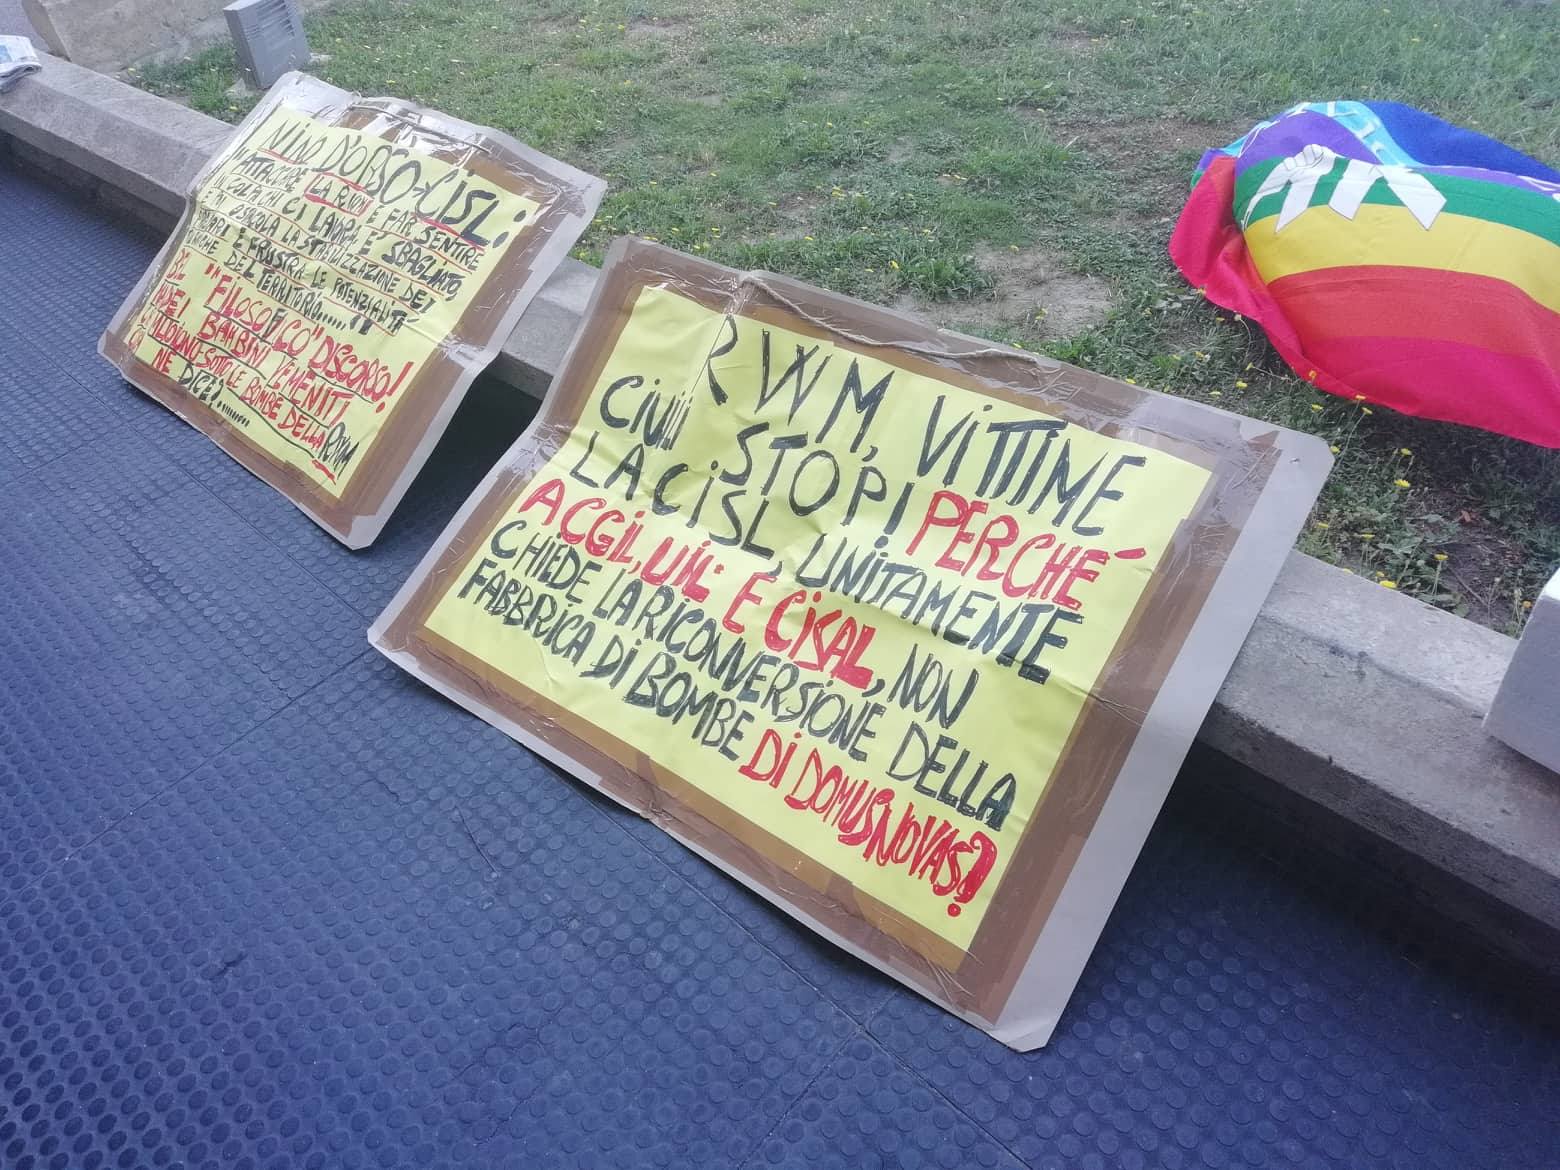 NINO D'ORSO-CISL:
"ATTACCARE LA RWM E FAR SENTIRE
CHI CI LAVORA È SBAGLIATO,
E MI OSTICOLA LA STABILIZZAZIONE DEI
E FRUSTRA LE POTENZIALITÀ
DEL TERRITORIO......"
"FILOSOFICO" DISCORSO!
DEI BAMBINI YEMENITI
MUOIONO SOTTO LE BOMBE DELLA RWM
NE DICE?.......
RWM, VITTIME
CIVILI STOP! PERCHÉ
LA CISL, UNITAMENTE
A CGIL, UIL: E CISAL, NON
CHIEDE LA RICONVERSIONE DELLA
FABBRICA DI BOMBE DI DOMUSNOVAS?